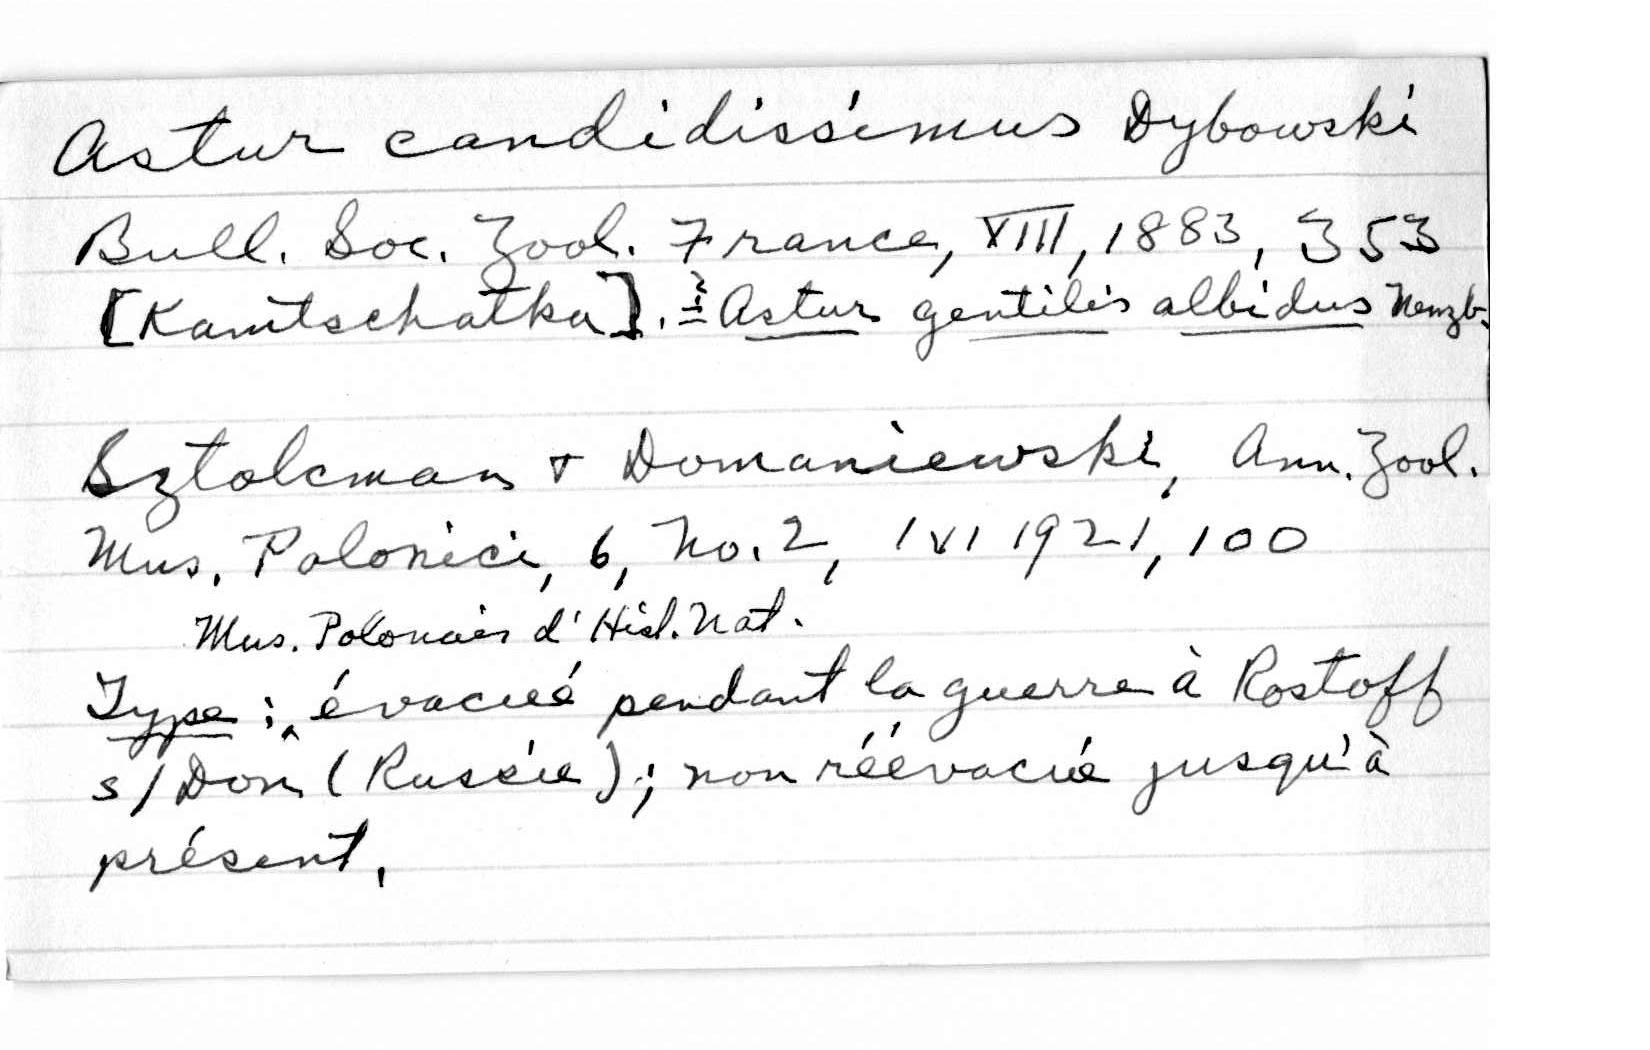 Astur candidissimus Dybowski
Bull. Soc. Zool. France, XIII, 1883, 353
[Kamtschatka]. = Astur gentilis albidus
Sztolcman + Domaniewski, Ann. Zool.
Mus. Polonici, 6, No. 2, 1 VI 1921, 100
Mus. Polonais d'Hist. Nat.
Type: évacué pendant la guerre à Rostoff
s/Don (Russie); non réévacué jusqu'à
présent.